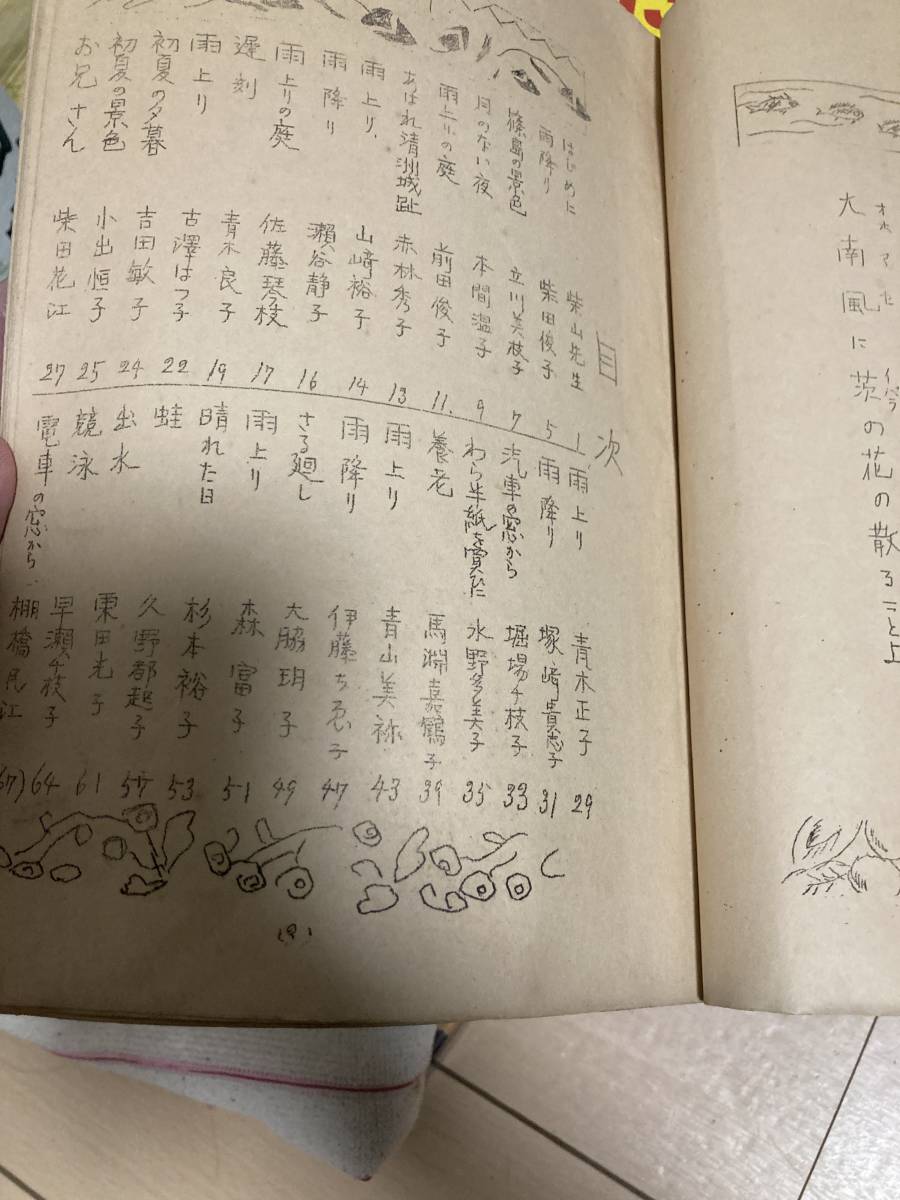 大南風に茨の花の散ること上
目次
はじめに 柴山先生 1
雨降り 柴田俊子 5
篠島の景色 立川美枝子 7
月のない夜 本間温子 9
雨上りの庭 前田俊子 11.
あはれ清洲城趾 赤林秀子 13
雨上り、 山崎裕子 14
雨降り 瀬谷静子 16
雨上りの庭 佐藤琴枝 17
遅刻 青木良子 19
雨上り 古澤はつ子 22
初夏の夕暮 吉田敏子 24
初夏の景色 小出恒子 25
お兄さん 柴田花江 27
雨上り 青木正子 29
雨降り 塚崎貴恵子 31
汽車の窓から 堀場千枝子 33
わら半紙を買ひに 水野多美子 35
養老 馬淵嘉鶴子 39
雨上り 青山美禄 43
雨降り 伊藤ちゑ子 47
さる廻し 大脇玥子 49
雨上り 森富子 51
晴れた日 杉本裕子 53
蛙 久野都起子 57
出水 栗田光子 61
競泳 早瀬千枝子 64
電車の窓から、 棚橋民江 67)